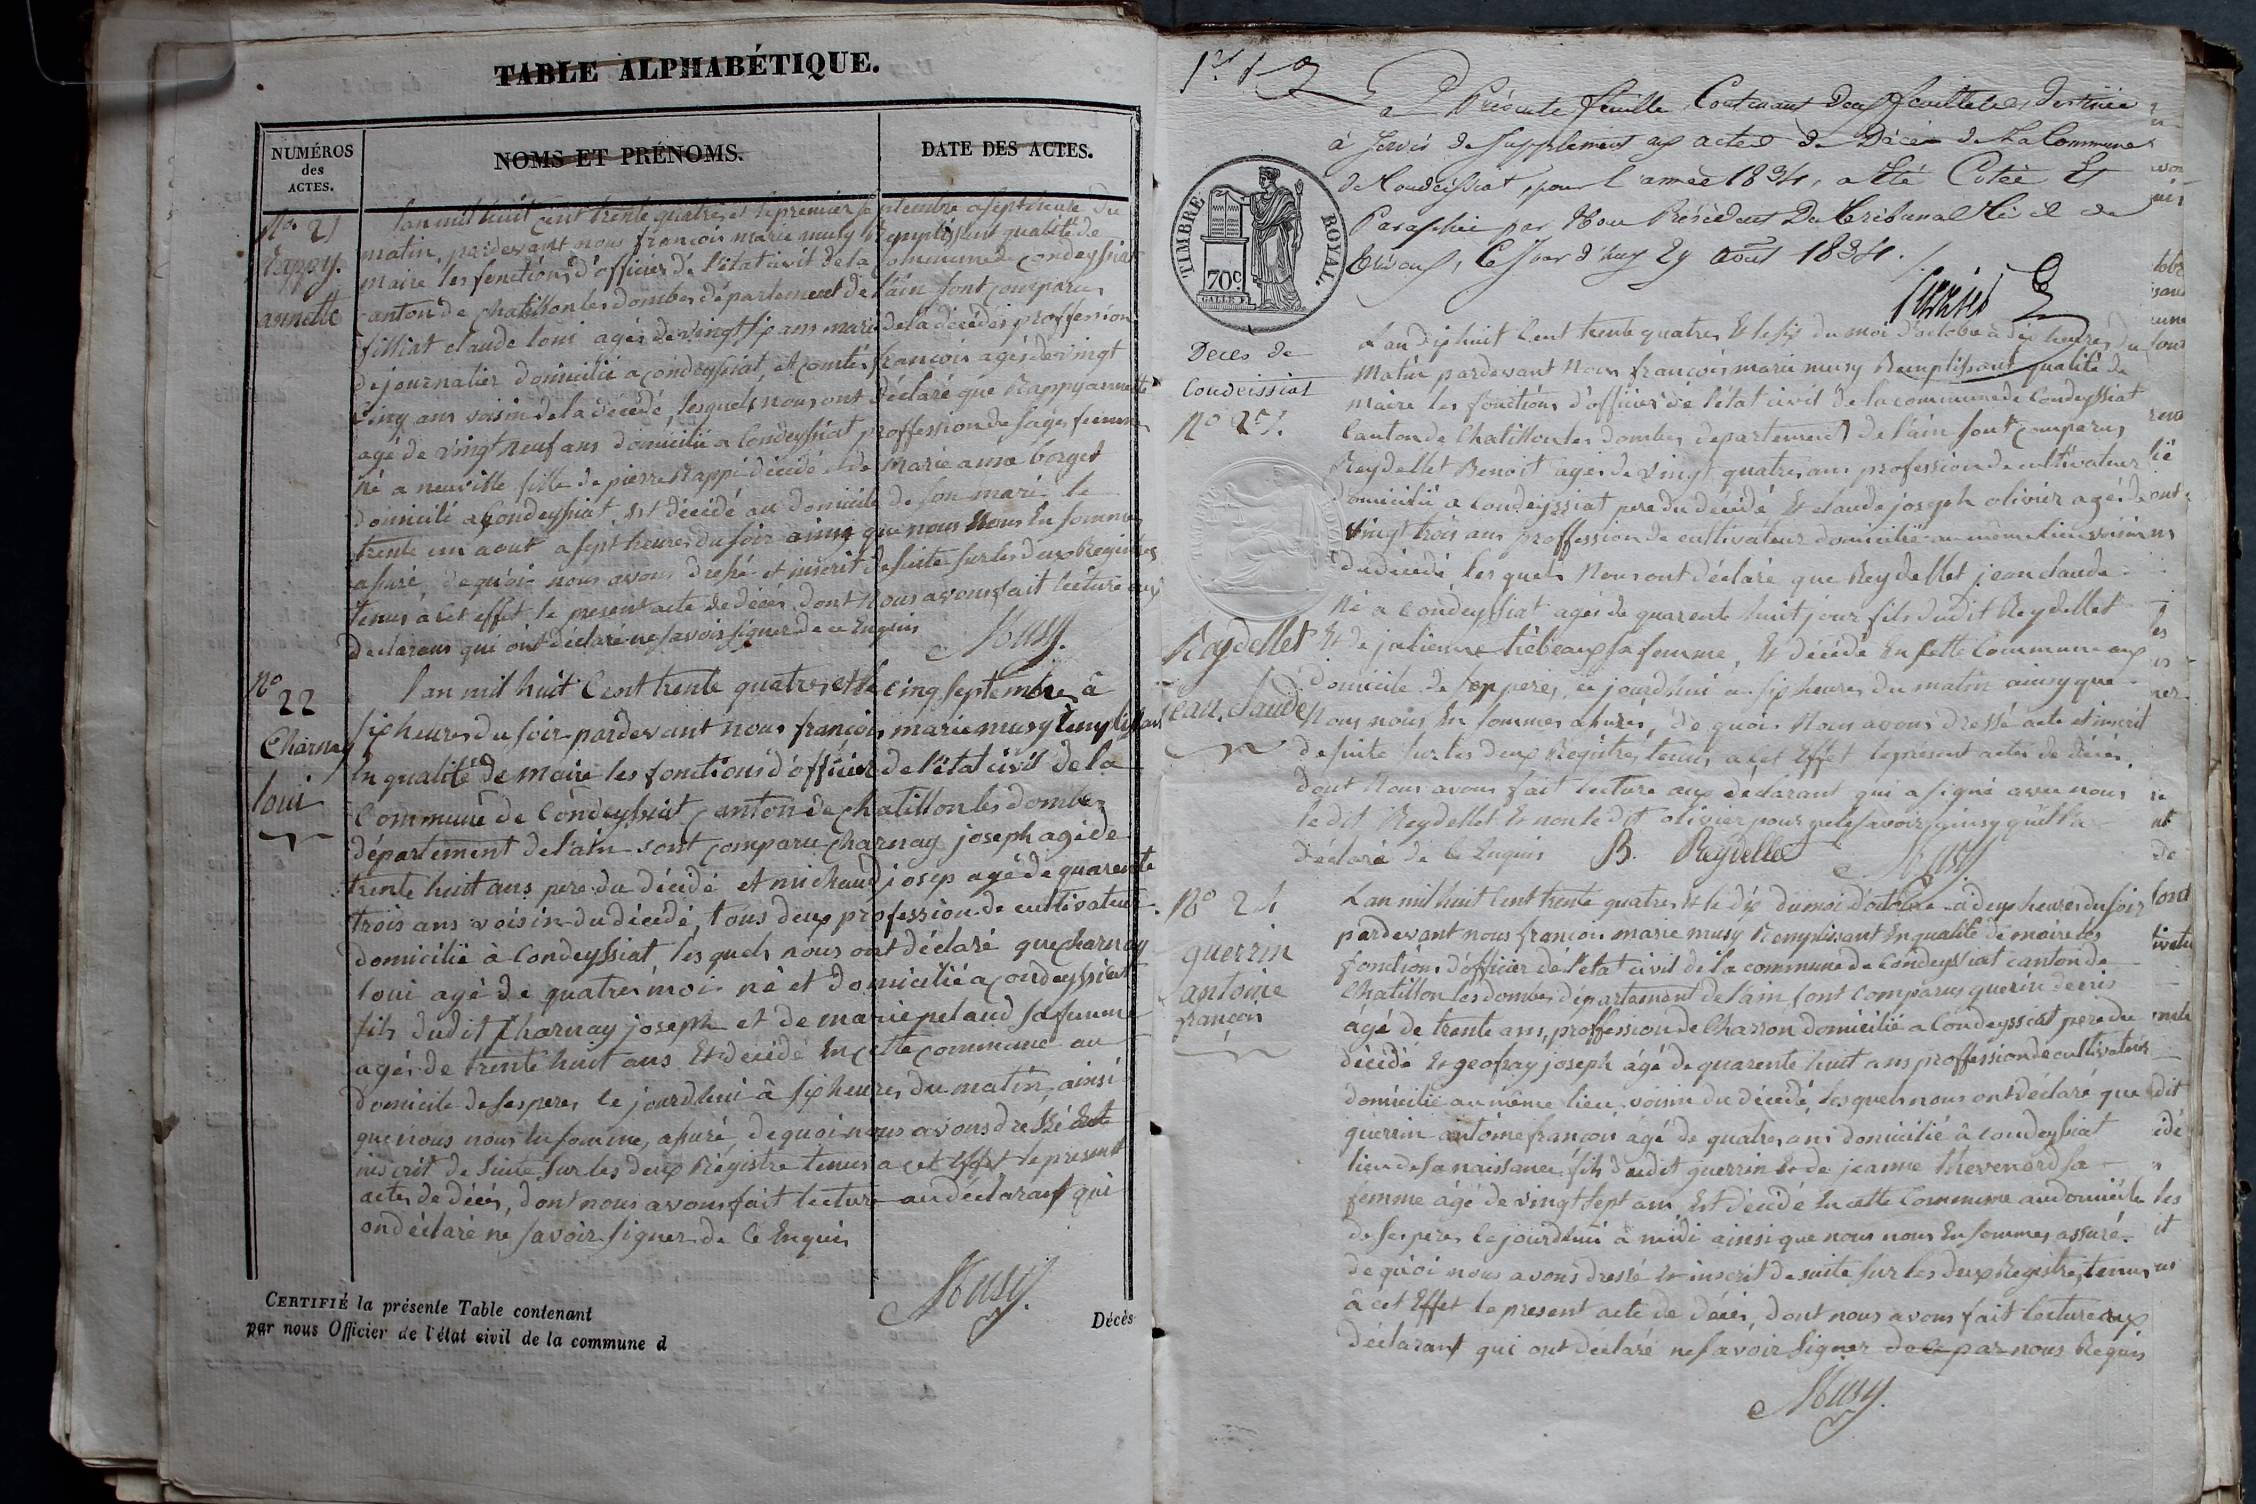 TABLE ALPHABÉTIQUE.
NUMÉROS
des
ACTES.
NOMS ET PRÉNOMS.
DATE DES ACTES.
No. 21
Rappy.
annette
l'an mil huit cent trente quatre, et le premier septembre a sept heure du
matin, pardevant nous françois marie musy Remplissant qualité de
maire les fonctions d'officier de l'état civil de la commune de condeyssiat
canton de chatillon les dombes département de l'ain sont comparus
filliat claude loui agés de vingt six ans mari de la décédés proffession
de journalier domicilié a condeyssiat, et comtes françois agés de vingt
cinq ans voisin de la décédé, lesquels nous ont déclaré que Rappy annette
agé de vingt neuf ans domicilié a Condeyssiat proffession de sages femme
né a neuville fille de pierre Rappi décédé et de marie anne borget
domicilé a Condeyssiat, est décédé au domicile de son mari le
trente un aout a sept heures du soir ainsy que nous Nous En sommes
asuré, de quoi nous avons dressé et inscrit de suite sur les deux Registres
tenus a cet effet le present acte de déces, dont Nous avons fait lecture aux
declarans qui ont déclaré ne savoir signer de ce Enquis
Musy.
No
22
Charnay
loui
l'an mil huit Cent trente quatres et le cinq septembre, à
six heures du soir pardevant nous françois marie musy Remplissant
En qualité de maire les fonctions d'officier de l'état civil de la
Commune de Condeyssiat canton de chatillon les dombes
département de l'ain sont comparu charnay joseph agé de
trente huit ans pere du décédé et michaud josep agé de quarente
trois ans voisin du décedé, tous deux profession de cultivateur
domicilié à Condeyssiat lesquels nous ont déclaré que charnay
loui agé de quatres moi né et domicilié a condeyssiat
fils dudit Charnay joseph et de marie pelaud sa femme
agés de trente huit ans Est décédé En cette commune au
domicile de ses peres le jourdhui à six heures du matin, ainsi
que nous nous En somme, asuré, de quoi nous avons dressé Est
inscrit de suite sur les deux Régistre tenus a cet Effet le present
actes de décés, dont nous avons fait lecture au déclarant qui
on déclaré ne savoir signer de Ce Enquis
Musy.
CERTIFIÉ la présente Table contenant
par nous Officier de l'état civil de la commune d
Décès
La Présente feuille Contenant deux feuillets, destinée
à Servir de Supplément aux actes de Décès de La Commune
de Condeissiat, pour l'année 1834, a été Cotée Et
Paraphée par Nous Président Du tribunal Civil de
Trévoux, Ce Jour d'huy 29 août 1834.
TIMBRE ROYAL.
70c.
Décès de
Condeissiat
No 23.
Reydellet
jean claude
L'an dix huit Cent trente quatres Et le six du moi d'octobre à dix heures du
Matin pardevant Nous françois marie musy Remplissant qualité de
maire les fonctions d'officier de l'état civil de la commune de Condeyssiat
Canton de Chatillon les dombes departement de l'ain sont comparus
Reydellet Benoit agés de vingt quatres ans profession de cultivateur
domicilié a Condeyssiat pere du décédé Et claude joseph olivier agés de
vingt trois ans proffession de cultivateur domicilié au même lieu voisin
du décédé, lesquels Nous ont déclaré que Reydellet jean claude
Né a Condeyssiat agés de quarente huit jour fils dudit Reydellet
Et de julienne trebeaux sa femme, Est décédé En cette Commune aux
domicile de ses peres, ce jourdhui a six heures du matin ainsy que
Nous nous En sommes asurés, de quoi Nous avons dressé acte et inscrit
de suite sur les deux Registres tenus a cet Effet le present actes de décés,
dont Nous avons fait lecture aux déclarant qui a signé avec nous
le dit Reydellet Et non le dit olivier pour ne le savoir, ainsy qu'il l'a
déclaré de Ce Enquis B. Reydellet Musy
No 24
guerrin
antoine
françois
L'an mil huit Cent trente quatres, et le dix du moi d'octobre a deux heures du soir
pardevant nous françois marie musy Remplissant En qualité de maire les
fonctions d'officier de l'état civil de la commune de Condeyssiat canton de
Chatillon les dombes département de l'ain sont comparus guerin denis
âgé de trente ans, proffession de Charron domicilié a Condeyssiat pere du
décédé Et geofray joseph âgé de quarente huit ans proffession de cultivateur
domicilié au même lieu voisin du décédé, lesquels nous ont déclaré que
guerrin antoine françois âgé de quatres ans domicilié â condeyssiat
lieu de sa naissance fils dudit guerrin Et de jeanne thevenard sa
femme âgé de vingt sept ans, Est décédé En cette Commune au domicile
de ses peres le jourdhui à midi ainsi que nous nous En sommes assuré.
de quoi nous avons dressé Et inscrit de suite sur les deux Registres tenus
â cet Effet le present acte de décés, dont nous avons fait lecture aux
déclarant qui ont déclaré ne savoir signer de ce par nous Requis
Musy.